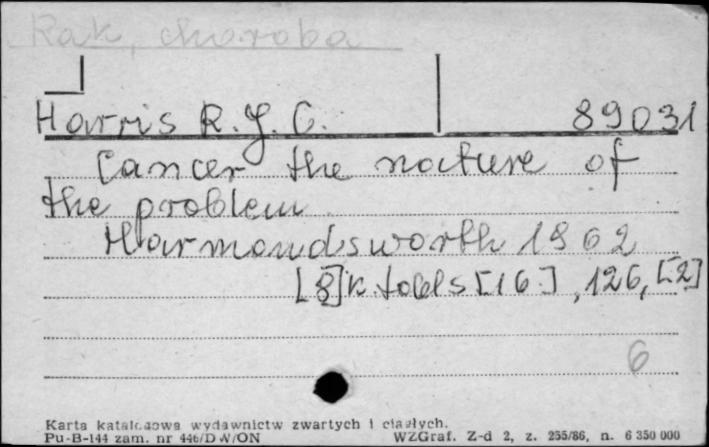 Rak, choroba
Harris R. J. C. 89031
Cancer the nature of
the problem
Harmondsworth 1962
[8] k. tabl s [16], 126, [2]
6
Karta katalogowa wydawnictw zwartych i ciągłych.
Pu-B-144 zam. nr 446/DW/ON WZGraf. Z-d 2, z. 255/86, n. 6 350 000